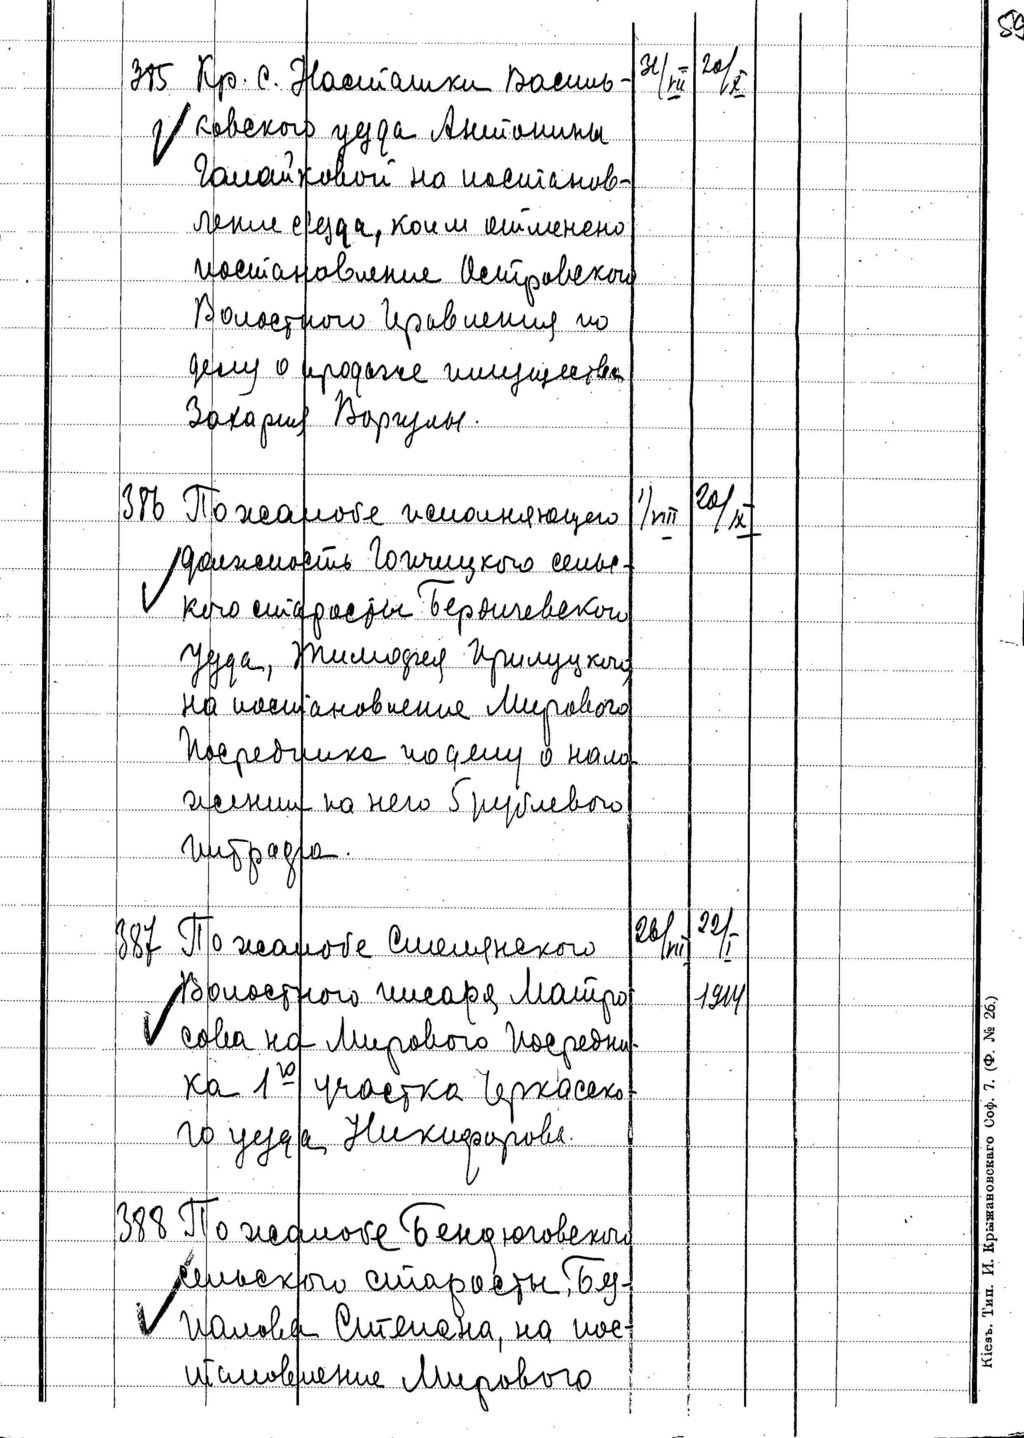 59
385 Кр. с. Насташки Василь- 31/VII 20/X
ковского уезда Антонины
Галайковой на постанов-
ление с'езда, коим отменено
постановление Островского
Волостного Правления по
делу о продаже имущества
Захария Варгулы.
386 По жалобе исполняющего 1/VIII 20/IX
должность Гопчицкого сельс-
кого старосты Бердичевского
уезда, Тимофея Прилуцкого
на постановление Мирового
Посредника по делу о нало
жении на него 5 рублевого
штрафа.
387 По жалобе Смелянского 26/VII 22/I
Волостного писаря Матро 1914
сова на Мирового Посредни-
ка 1го участка Черкасско-
го уезда Никифорова.
388 По жалобе Бендюговского
сельского старосты,
Степана, на пос-
тановление Мирового
Кіевъ. Тип. И. Крыжановскаго Соф. 7. (Ф. № 26.)